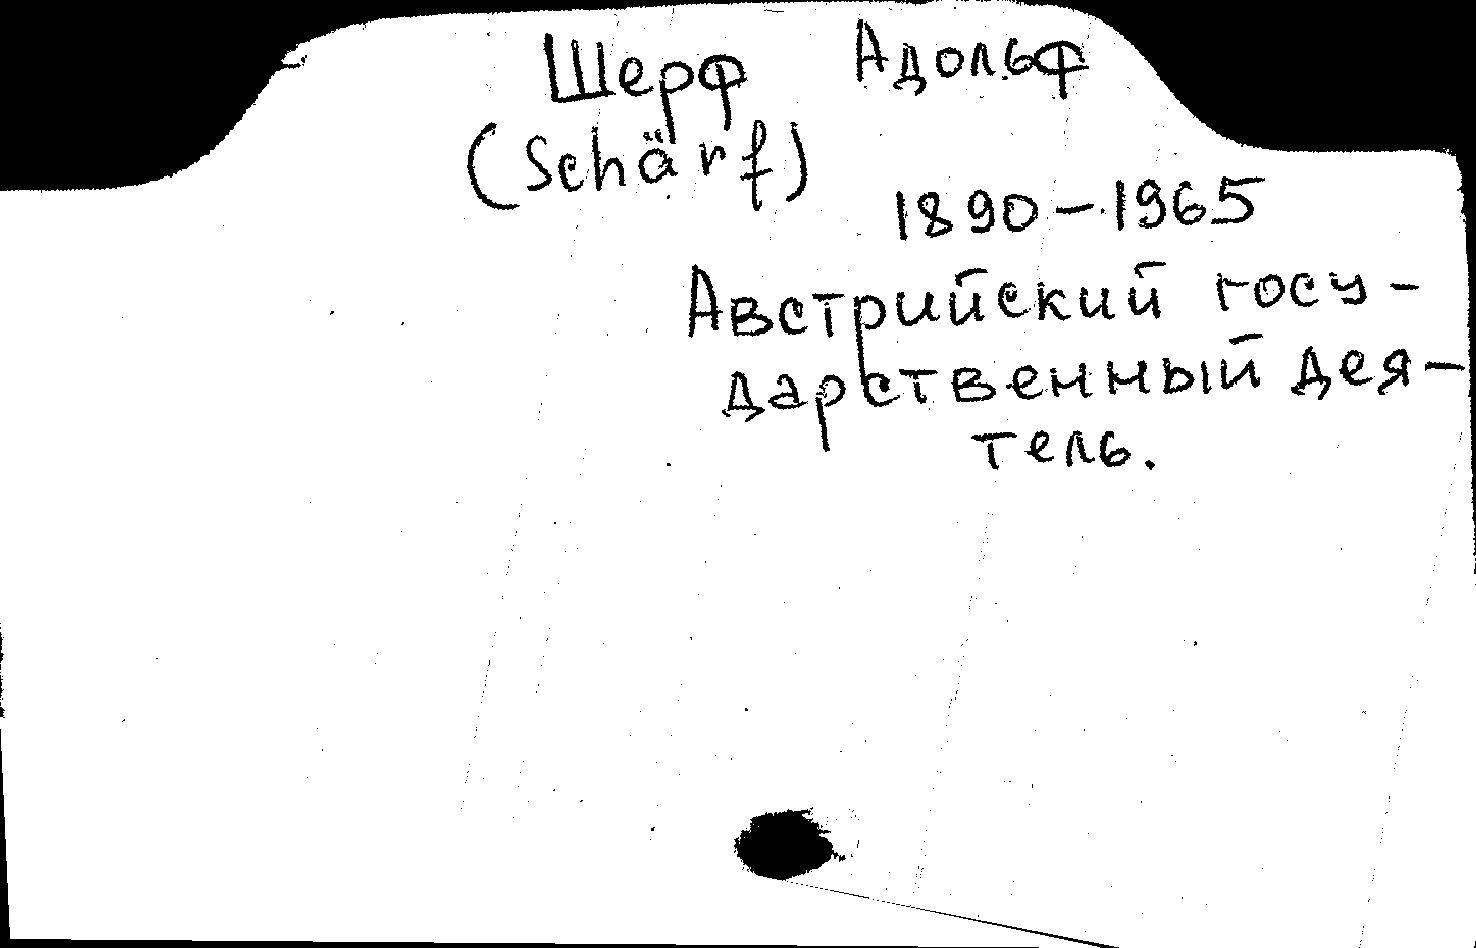 Шерф Адольф
(Schärf)
1890-1965
Австрийский госу-
дарственный дея-
тель.